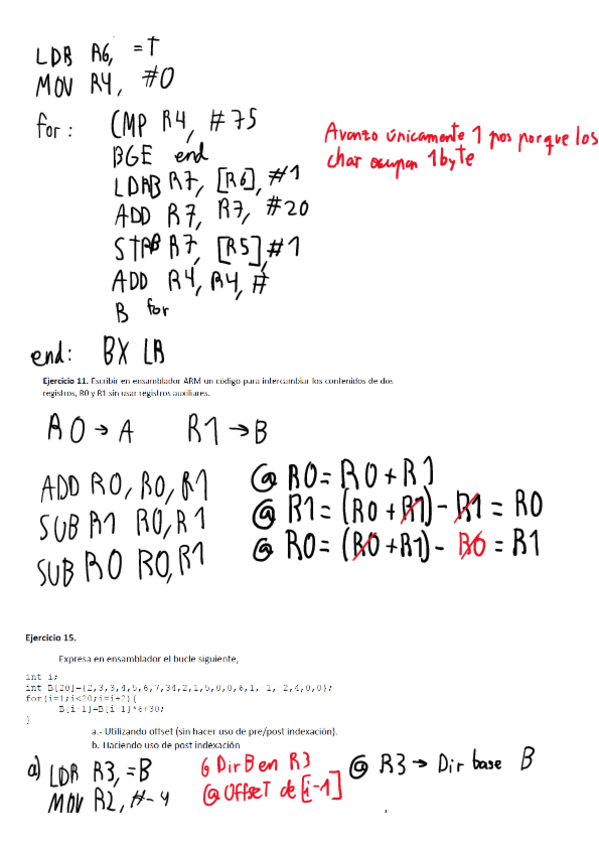 LDR R6, =T
MOV R4, #0
for: CMP R4, #75
BGE end
LDRB R7, [R6], #1
ADD R7, R7, #20
STRB R7, [R5], #1
ADD R4, R4, #
B for
end: BX LR
Avanzo únicamente 1 pos porque los
char ocupan 1 byte
Ejercicio 11. Escribir en ensamblador ARM un código para intercambiar los contenidos de dos
registros, R0 y R1 sin usar registros auxiliares.
R0 → A R1 → B
ADD R0, R0, R1 @ R0 = R0 + R1
SUB R1 R0, R1 @ R1 = (R0 + R1) - R1 = R0
SUB R0 R0, R1 @ R0 = (R0 + R1) - R0 = R1
Ejercicio 15.
Expresa en ensamblador el bucle siguiente,
int i;
int B[20]={2,3,3,4,5,6,7,34,2,1,5,0,0,6,1, 1, 2,4,0,0};
for(i=1;i<20;i=i+2){
B[i-1]=B[i-1]*6+30;
}
a.- Utilizando offset (sin hacer uso de pre/post indexación).
b. Haciendo uso de post indexación
a) LDR R3, =B @ Dir B en R3 @ R3 → Dir base B
MOV R2, #-4 @ OffseT de [i-1]